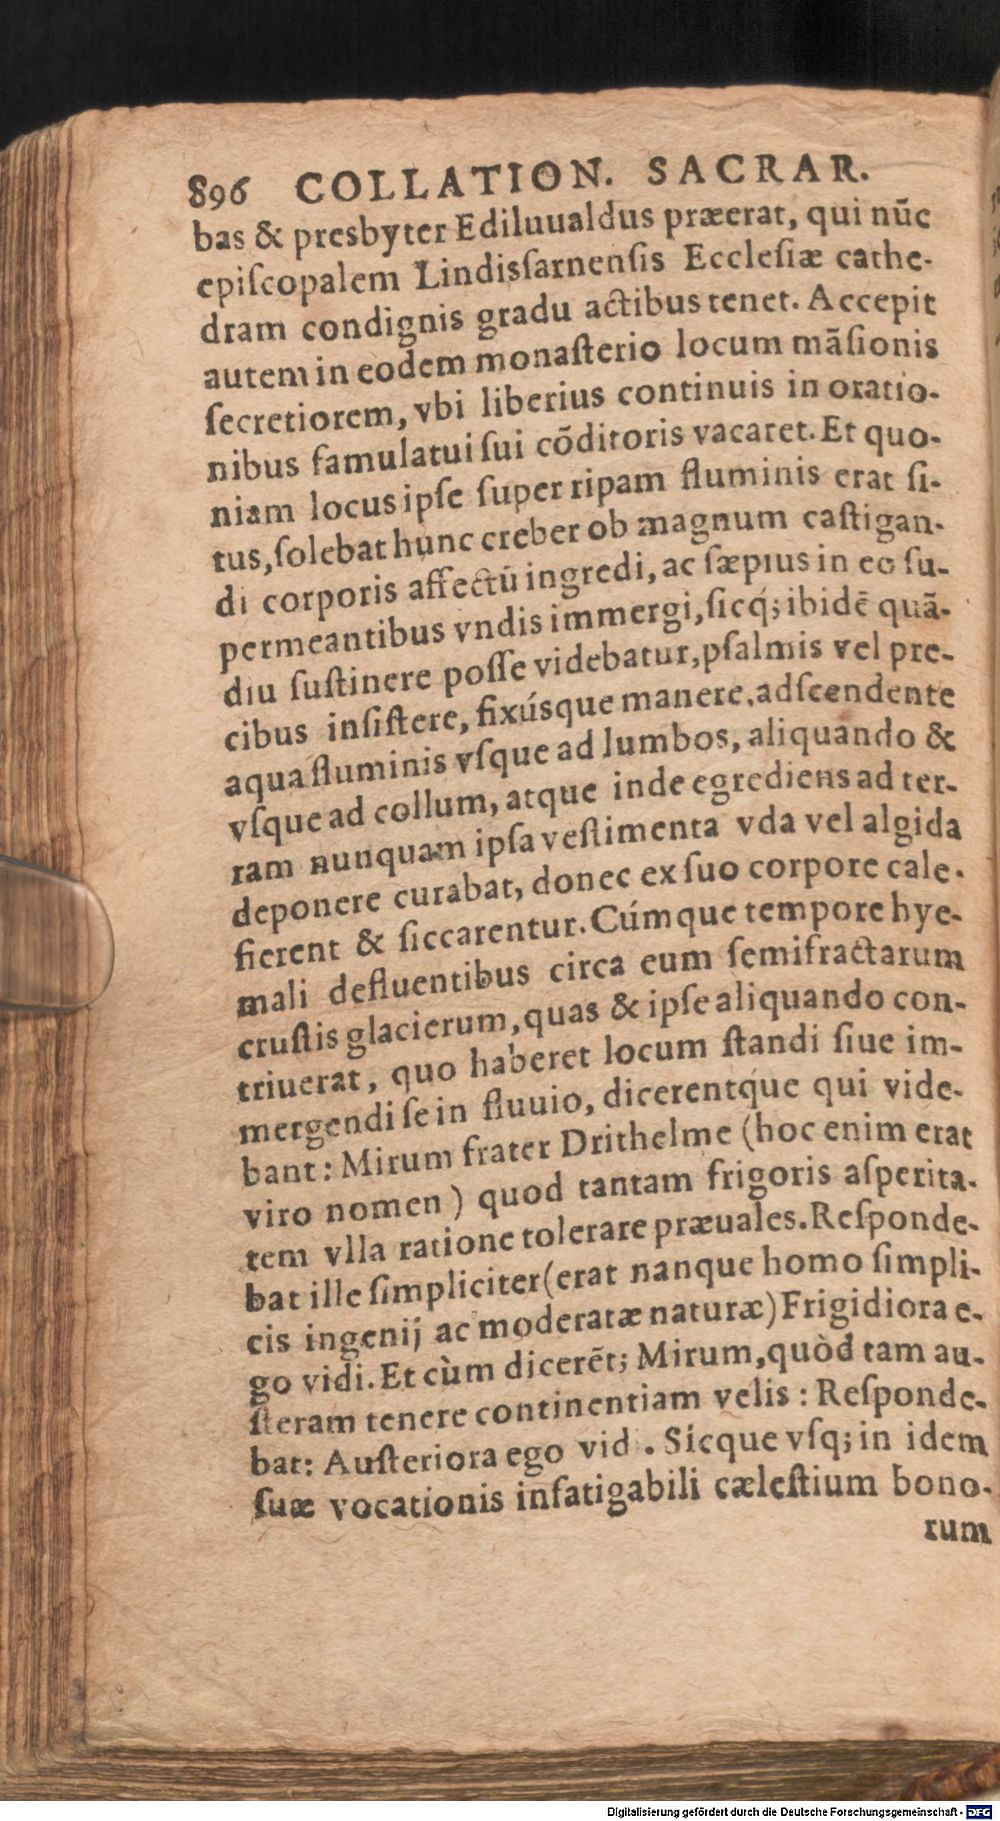 896 COLLATION. SACRAR.
bas & presbyter Ediluualdus præerat, qui nūc
epiſcopalem Lindisſarnenſis Eccleſiæ cathe-
dram condignis gradu actibus tenet. Accepit
autem in eodem monaſterio locum māſionis
ſecretiorem, vbi liberius continuis in oratio-
nibus famulatui ſui cōditoris vacaret. Et quo-
niam locus ipſe ſuper ripam fluminis erat ſi-
tus, ſolebat hunc creber ob magnum caſtigan-
di corporis affectū ingredi, ac ſæpius in eo ſu-
permeantibus vndis immergi, ſicq́; ibidē quā-
diu ſuſtinere poſſe videbatur, pſalmis vel pre-
cibus inſiſtere, fixúsque manere, adſcendente
aqua fluminis vſque ad lumbos, aliquando &
vſque ad collum, atque inde egrediens ad ter-
ram nunquam ipſa veſtimenta vda vel algida
deponere curabat, donec ex ſuo corpore cale-
fierent & ſiccarentur. Cúmque tempore hye-
mali defluentibus circa eum ſemifractarum
cruſtis glacierum, quas & ipſe aliquando con-
triuerat, quo haberet locum ſtandi ſiue im-
mergendi ſe in fluuio, dicerentq́ue qui vide-
bant: Mirum frater Drithelme (hoc enim erat
viro nomen) quod tantam frigoris aſperita-
tem vlla ratione tolerare præuales. Reſponde-
bat ille ſimpliciter (erat nanque homo ſimpli-
cis ingenij ac moderatæ naturæ) Frigidiora e-
go vidi. Et cùm dicerēt; Mirum, quòd tam au-
ſteram tenere continentiam velis: Reſponde-
bat: Auſteriora ego vid . Sicque vſq; in idem
ſuæ vocationis infatigabili cæleſtium bono-
rum
Digitalisierung gefördert durch die Deutsche Forschungsgemeinschaft - DFG